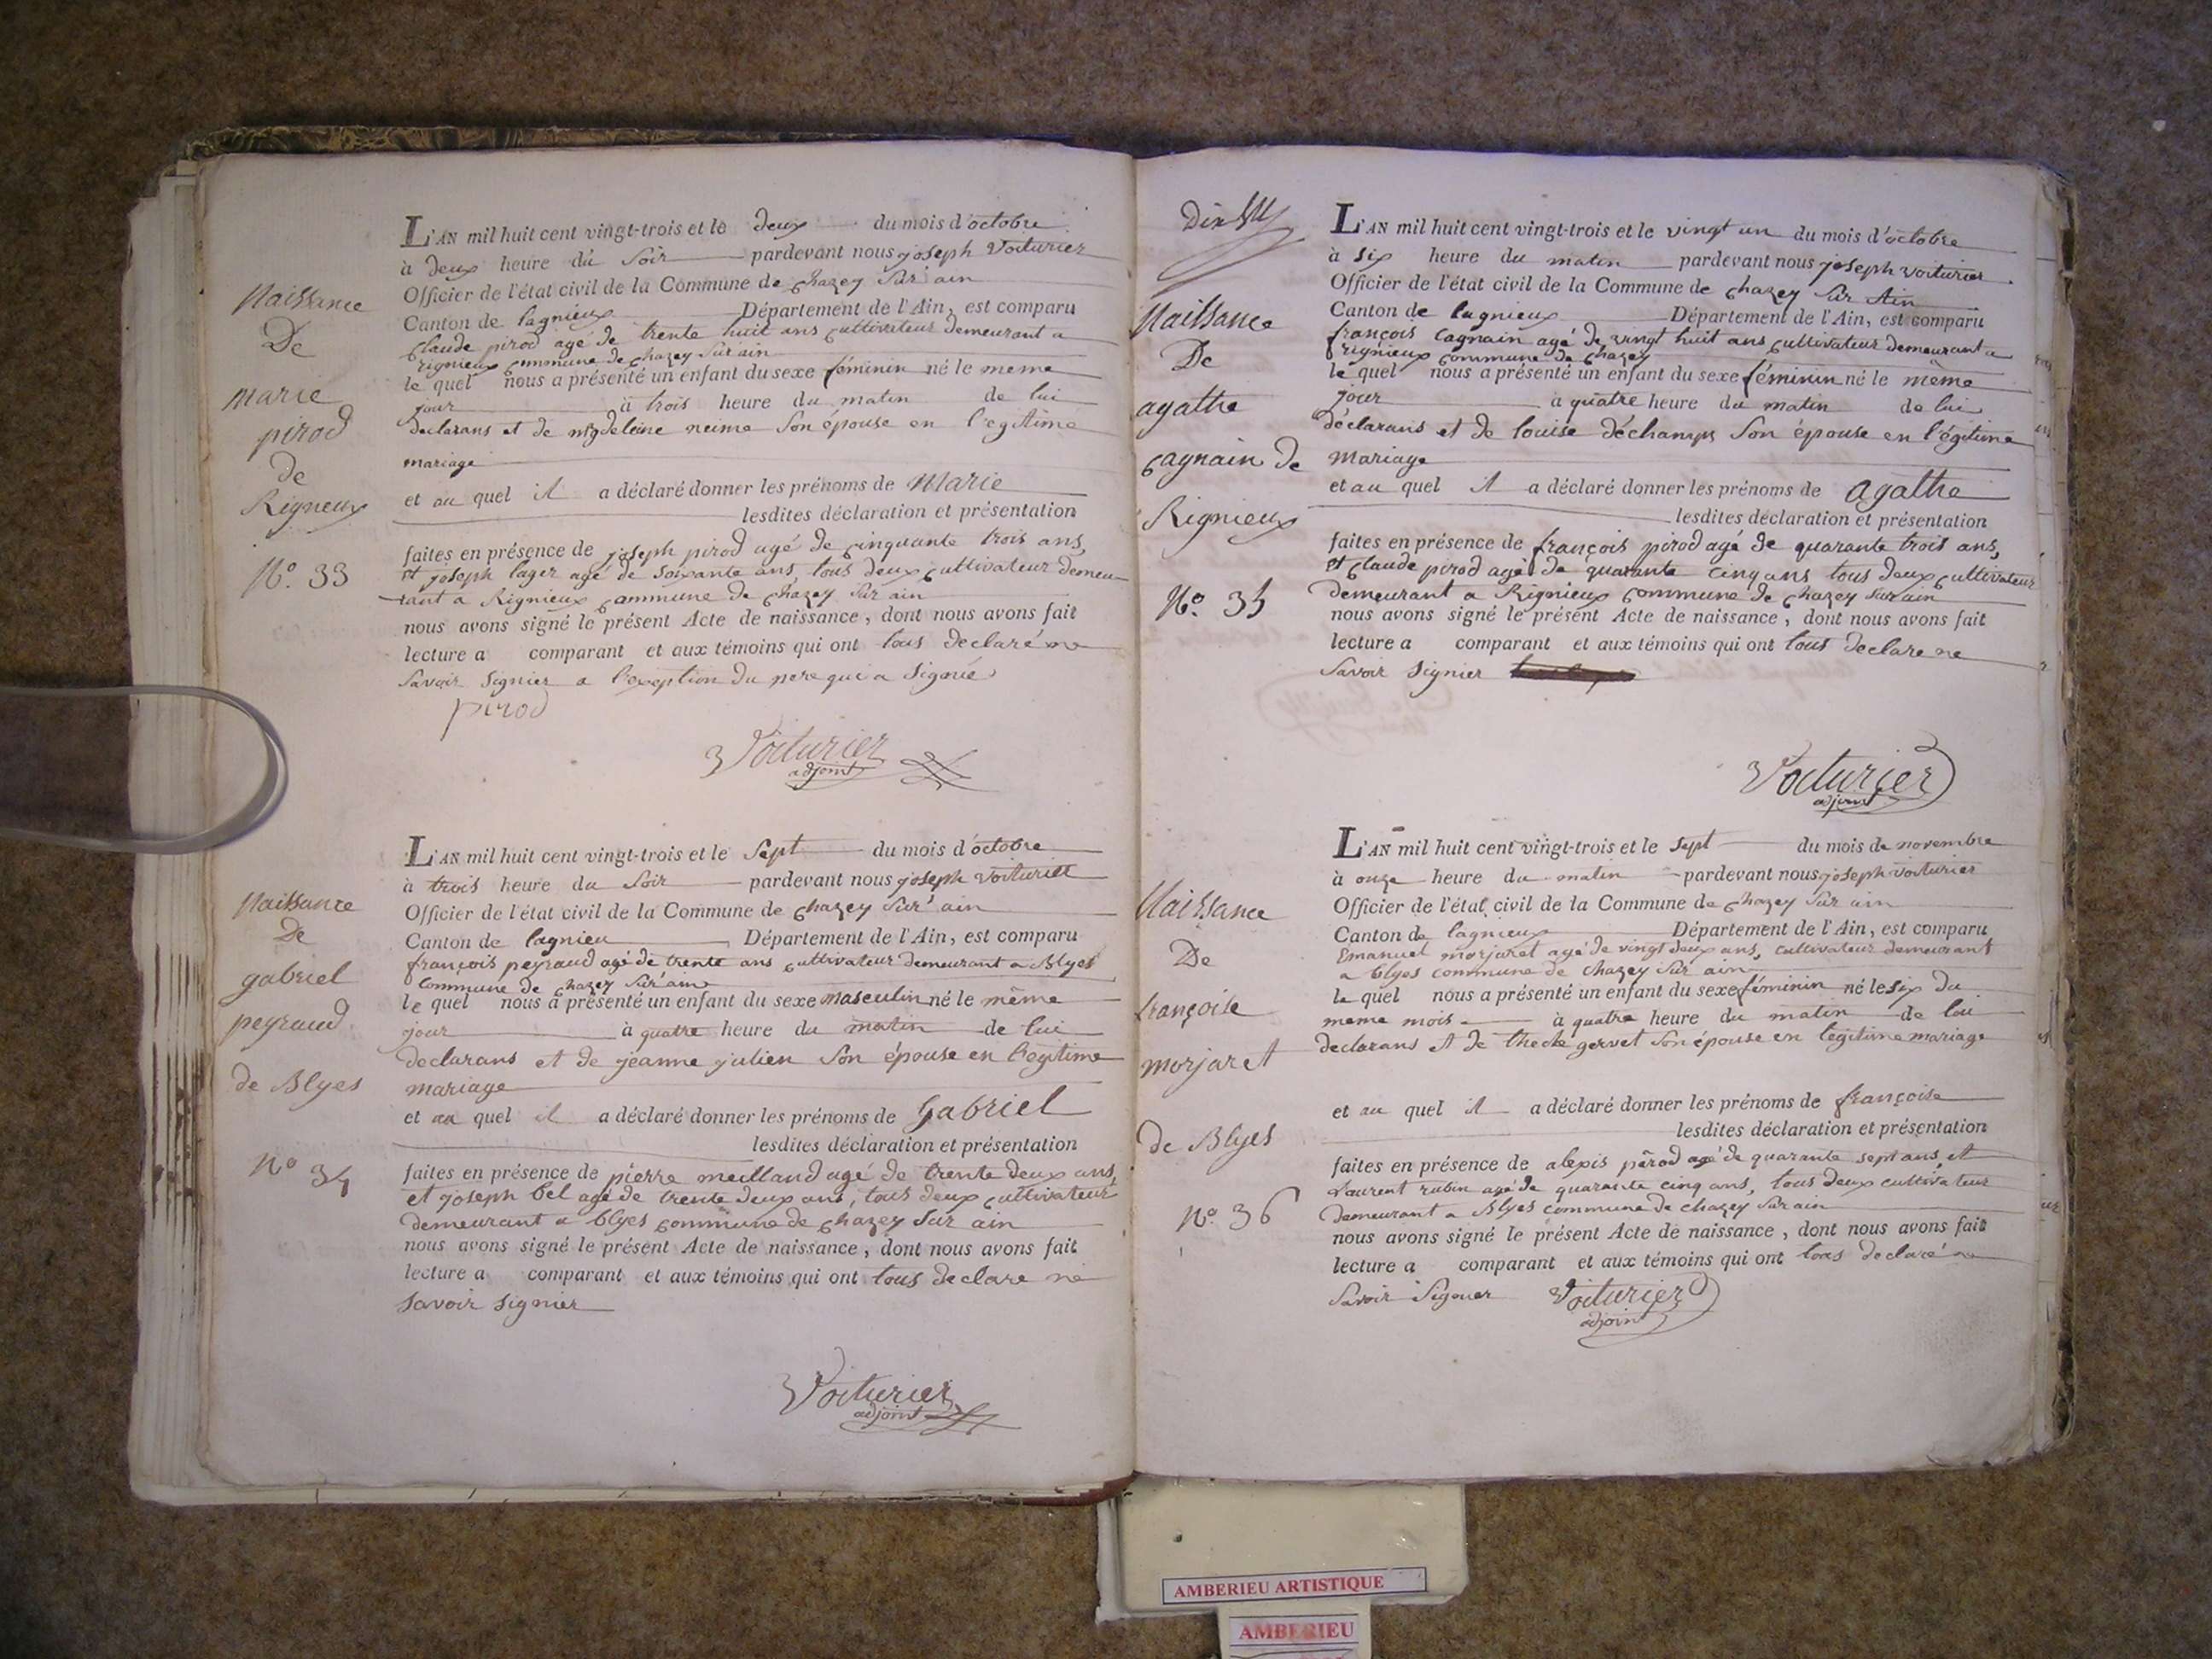 L'AN mil huit cent vingt-trois et le deux du mois d'octobre
à deux heure du Soir pardevant nous joseph Voiturier
Officier de l'état civil de la Commune de chazey Sur ain
Canton de lagnieux Département de l'Ain, est comparu
Claude pirod agé de trente huit ans cultivateur demeurant a
rignieux commune de chazey Sur ain
le quel nous a présenté un enfant du sexe féminin né le meme
jour à trois heure du matin de lui
declarans et de magdeleine neime Son épouse en legitime
mariage
et au quel il a déclaré donner les prénoms de Marie
lesdites déclaration et présentation
faites en présence de joseph pirod agé de cinquante trois ans,
et joseph lager agé de Soixante ans, tous deux cultivateur demeu-
rant a Rignieux commune de chazey Sur ain
nous avons signé le présent Acte de naissance, dont nous avons fait
lecture a comparant et aux témoins qui ont tous declaré ne
Savoir Signier a l'exeption du pere qui a Signié
pirod
Voiturier
adjoint
Naissance
De
marie
pirod
de
Rigneux
No. 33
L'AN mil huit cent vingt-trois et le Sept du mois d'octobre
à trois heure du Soir pardevant nous joseph Voiturier
Officier de l'état civil de la Commune de chazey Sur ain
Canton de lagnieu Département de l'Ain, est comparu
françois peyraud agé de trente ans cultivateur demeurant a Blyes
commune de chazey Sur ain
le quel nous a présenté un enfant du sexe masculin né le même
jour à quatre heure du matin de lui
declarans et de jeanne julien Son épouse en legitime
mariage
et au quel il a déclaré donner les prénoms de Gabriel
lesdites déclaration et présentation
faites en présence de pierre meilland agé de trente deux ans,
et joseph bel agé de trente deux ans, tous deux cultivateur
demeurant a blyes commune de chazey Sur ain
nous avons signé le présent Acte de naissance, dont nous avons fait
lecture a comparant et aux témoins qui ont tous declare ne
Savoir Signier
Voiturier
adjoint
Naissance
De
gabriel
peyraud
de Blyes
No 34
L'AN mil huit cent vingt-trois et le vingt un du mois d'octobre
à Six heure du matin pardevant nous joseph voiturier
Officier de l'état civil de la Commune de chazey Sur Ain
Canton de lagnieux Département de l'Ain, est comparu
françois cagnain agé de vingt huit ans cultivateur demeurant a
rignieux commune de chazey
le quel nous a présenté un enfant du sexe féminin né le même
jour à quatre heure du matin de lui
déclarans et de louise déchamps Son épouse en légitime
mariage
et au quel il a déclaré donner les prénoms de agathe
lesdites déclaration et présentation
faites en présence de françois pirod agé de quarante trois ans,
et Claude pirod agé de quarante cinq ans tous deux cultivateur
demeurant a Rignieux commune de chazey Sur ain
nous avons signé le présent Acte de naissance, dont nous avons fait
lecture a comparant et aux témoins qui ont tous declare ne
Savoir Signier
Voiturier
adjoint
Naissance
De
agathe
cagnain de
Rignieux
No. 35
L'AN mil huit cent vingt-trois et le sept du mois de novembre
à onze heure du matin pardevant nous joseph voiturier
Officier de l'état civil de la Commune de chazey Sur ain
Canton de lagnieux Département de l'Ain, est comparu
Emanuel morjaret agé de vingt deux ans, cultivateur demeurant
a blyes commune de chazey Sur ain
le quel nous a présenté un enfant du sexe féminin né le six du
meme mois à quatre heure du matin de lui
declarans et de thecle gervet Son épouse en legitime mariage
et au quel il a déclaré donner les prénoms de françoise
lesdites déclaration et présentation
faites en présence de alexis pérod agé de quarante sept ans, et
Laurent rubin agé de quarante cinq ans, tous deux cultivateur
demeurant a Blyes commune de chazey Sur ain
nous avons signé le présent Acte de naissance, dont nous avons fait
lecture a comparant et aux témoins qui ont tous declaré ne
Savoir Signer Voiturier
adjoint
Naissance
De
françoise
morjaret
de Blyes
No. 36
AMBERIEU ARTISTIQUE
AMBERIEU